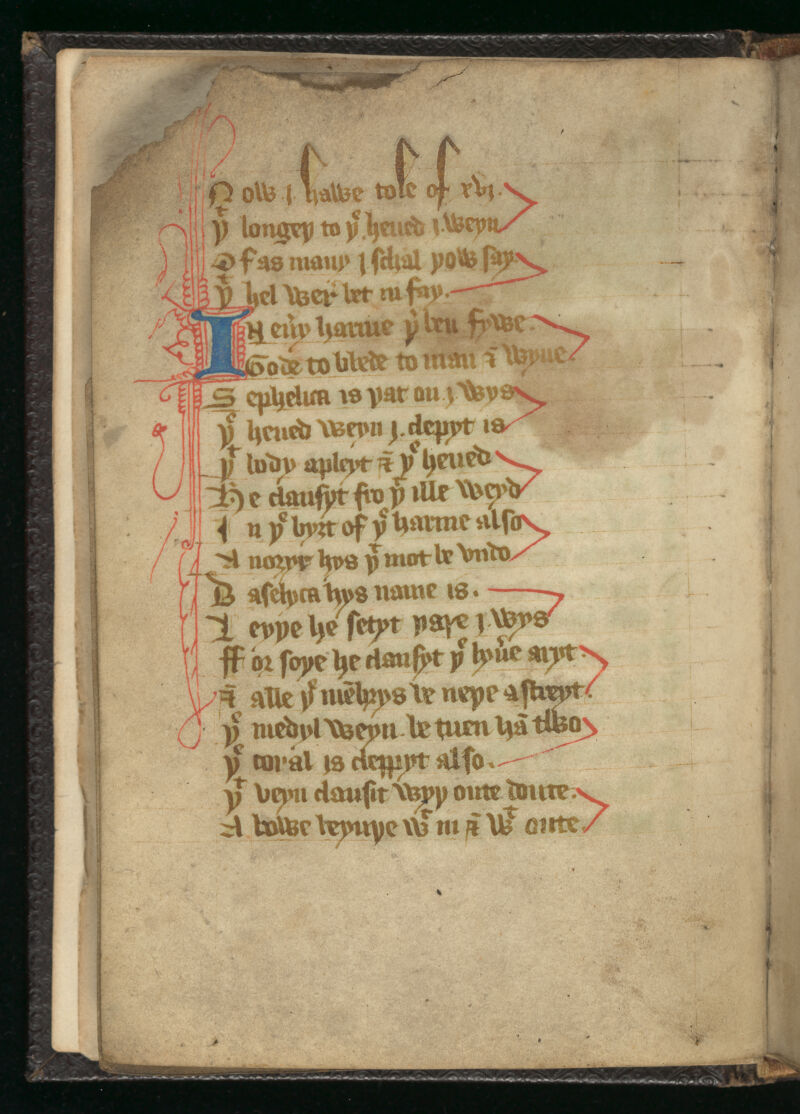 Now i hawe tole of xvj.
yͭ longey to yͤ heued i weyn
Of as many i schal yow say
yͭ hel wer let in fay.
IN eu͛y harme yͬ ben fywe
Gode to blede to man & wyue
Sephelica is yat on i wys
yͤ heued weyn i. clepyt is
yͭ body apleyt & yͤ heued
He clansyt fro yͤ ille weyd
In yͤ byʒt of yͤ harme also
A noyyr hys yͭ mot be vndo
Baselyca hys name is.
Leyye he setyt yaye i wys
ffor soye he clansyt yͤ lyu͛e aryt
& alle yͤ mēbrys be neye a streyt.
yͤ medyl weyn be tuen hā two
yͤ coral is clepyt also.
yͭ veyn clansit wyy oute doute.
A bowe beynye wͭ in & wͭ oute